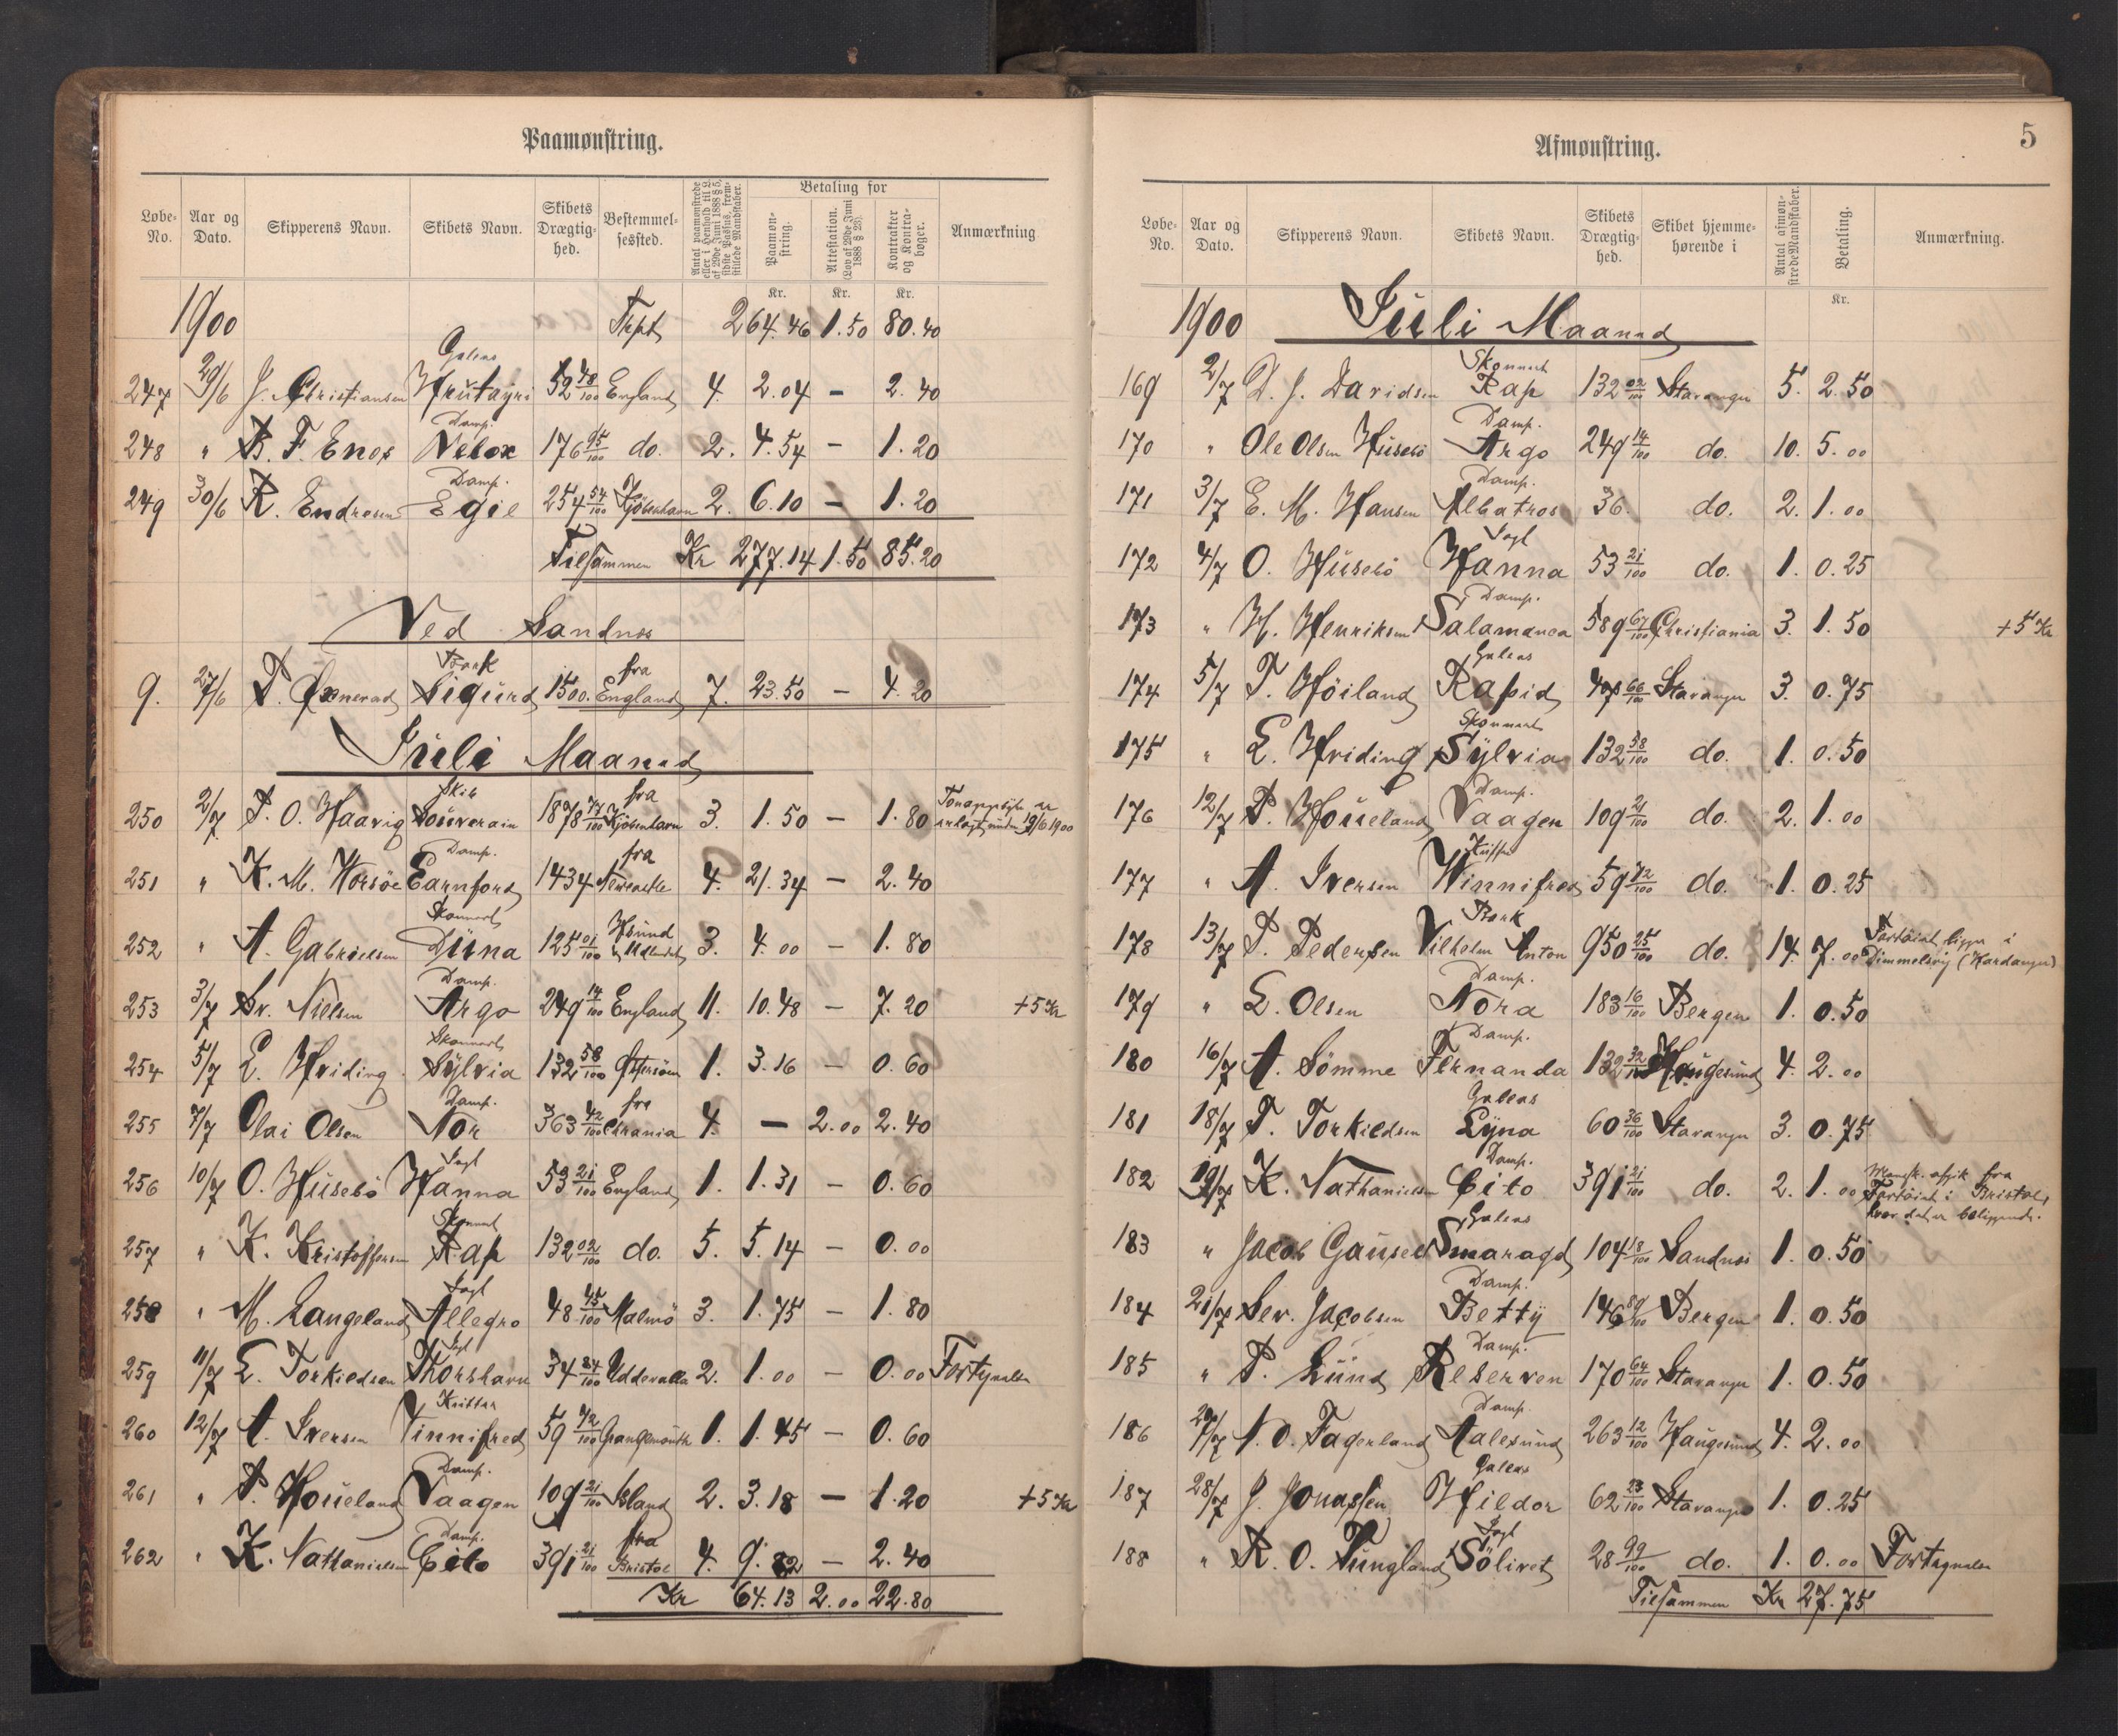 Paamønstring.
Løbe-No. Aar og Dato. Skipperens Navn. Skibets Navn. Skibets Drægtighed. Bestemmelsessted. Antal paamønstrede eller i Henhold til L. af 29de Juni 1888 § 5, sidste Passus, fremstillede Mandskaber. Betaling for Paamønstring. Attestation. (Lov af 29de Juni 1888 § 23). Kontrakter og Kontrabøger. Anmærkning
Kr. Kr. Kr.
1900 Trpt 264.46 1.50 80.40
247 29/6 J. Christiansen Galeas 52 48/100 England 4. 2.04 – 2.40
248 " B. F. Enos Damp. Velox 176 95/100 do. 2. 4.54 – 1.20
249 30/6 R. Endresen Damp. Egil 254 54/100 Kjöbenhavn 2. 6.10 – 1.20
Tilsammen Kr 277.14 1.50 85.20
Ved Sandnes
9. 27/6 Bark Sigurd 1500. fra England 7. 23.50 – 4.20
Juli Maaned
250 2/7 P. O. Haavig Skib Souverain 1878 77/100 fra Kjöbenhavn 3. 1.50 – 1.80 19/6 1900
251 " K. M. Worsöe Damp. Earnford 1434 fra Newcastle 4. 21.34 – 2.40
252 " A. Gabrielsen Skonnert Düna 125 01/100 Hsund & Udlandet 3. 4.00 – 1.80
253 3/7 Sv. Nielsen Damp. Argo 249 14/100 England 11. 10.48 – 7.20 +5 Kr
254 5/7 E. Hviding Skonnert Sylvia 132 58/100 Östersöen 1. 3.16 – 0.60
255 7/7 Olai Olsen Damp. Nor 363 42/100 fra Chrania 4. – 2.00 2.40
256 10/7 O. Husebö Jagt Hanna 53 21/100 England 1. 1.31 – 0.60
257 " K. Kristoffersen Skonnert Rap 132 02/100 do. 5. 5.14 – 0.00
258 " M. Langeland Jagt Allegro 48 45/100 Malmö 3. 1.75 – 1.80
259 11/7 E. Torkildsen Jagt Thorshavn 34 84/100 Uddevalla 2. 1.00 – 0.00 Fortynelse
260 12/7 A. Iversen Kutter Vinnifred 59 72/100 Grangemouth 1. 1.45 – 0.60
261 " P. Houeland Damp. Vaagen 109 21/100 Island 2. 3.18 – 1.20 +5 Kr
262 " K. Nathanielsen Damp. Cito 391 21/100 fra Bristol 4. 9.82 – 2.40
Kr 64.13 2.00 22.80
Afmønstring.
5
Løbe-No. Aar og Dato. Skipperens Navn. Skibets Navn. Skibets Drægtighed. Skibet hjemmehørende i Antal afmønstrede Mandskaber. Betaling. Anmærkning.
Kr.
1900 Juli Maaned
169 2/7 D. J. Davidsen Skonnert Rap 132 02/100 Stavanger 5. 2.50
170 " Ole Olsen Husebö Damp. Argo 249 14/100 do. 10. 5.00
171 3/7 E. M. Hansen Damp. Albatros 36. do. 2. 1.00
172 4/7 O. Husebö Jagt Hanna 53 21/100 do. 1. 0.25
173 " H. Henriksen Damp. Salamanca 589 67/100 Christiania 3. 1.50 +5 Kr
174 5/7 T. Höiland Galeas Rapid 66/100 Stavanger 3. 0.75
175 " E. Hviding Skonnert Sylvia 132 58/100 do. 1. 0.50
176 12/7 P. Houeland Damp. Vaagen 109 21/100 do. 2. 1.00
177 " A. Iversen Kutter Winnifred 59 72/100 do. 1. 0.25
178 13/7 P. Pedersen Bark Vilhelm Anton 950 25/100 do. 14. 7.00 Fartöiet ligger i Dimmelsvig (Hardanger)
179 " E. Olsen Damp. Nora 183 16/100 Bergen 1. 0.50
180 16/7 A. Sömme Damp. Fernanda 132 32/100 Haugesund 4. 2.00
181 18/7 T. Torkildsen Galeas Lyna 60 36/100 Stavanger 3. 0.75
182 19/7 K. Nathanielsen Damp. Cito 391 21/100 do. 2. 1.00 Mandsk. afgik fra Fartöiet i Bristol, hvor det er beliggende.
183 " Jacob Gausel Galeas Smaragd 104 18/100 Sandnes 1. 0.50
184 21/7 Sev. Jacobsen Damp. Betty 146 89/100 Bergen 1. 0.50
185 " P. Lund Damp. Reserven 170 64/100 Stavanger 1. 0.50
186 27/7 N. O. Fagerland Damp. Aalesund 263 12/100 Haugesund 4. 2.00
187 28/7 J. Jonassen Galeas Hildor 62 23/100 Stavanger 1. 0.25
188 " R. O. Tungland Jagt Sölivet 28 99/100 do. 1. 0.00 Fortynelse
Tilsammen Kr 27.75